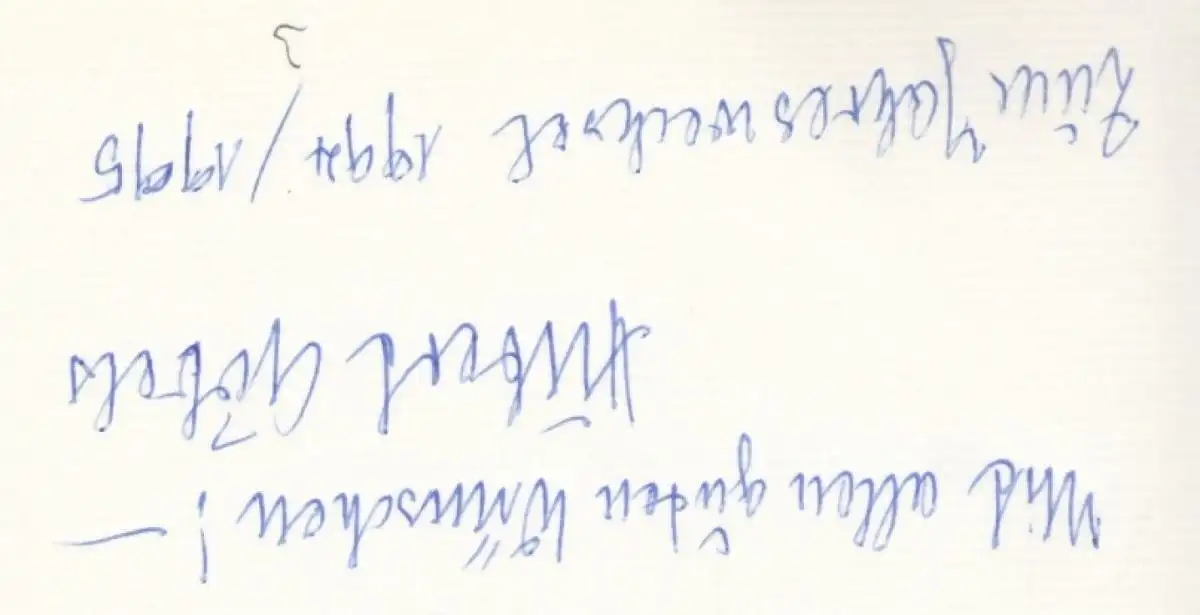 Mit allen guten Wünschen! —
Hubert Göbels
Zum Jahreswechsel 1994/1995